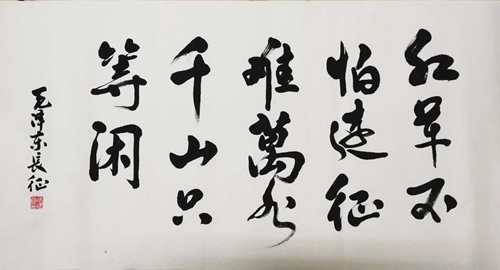 红军不
怕远征
难萬水
千山只
等闲
毛泽东长征